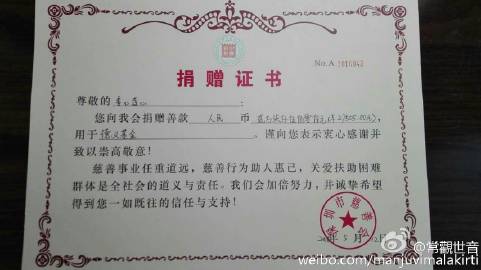 No.A 1016043
捐赠证书
尊敬的
您向我会捐赠善款 人民 币
用于 德义基金 。谨向您表示衷心感谢并
致以崇高敬意!
慈善事业任重道远,慈善行为助人惠己,关爱扶助困难
群体是全社会的道义与责任。我们会加倍努力,并诚挚希望
得到您一如既往的信任与支持!
深圳市慈善会
5月
常觀世音
weibo.com/manjuvimalakirti